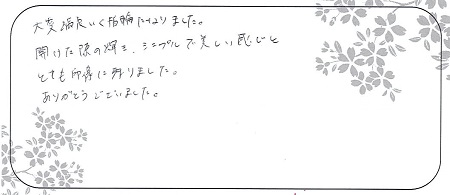 大変満足いく指輪になりました。
開けた際の輝き、シンプルで美しい感じと
とても印象に残りました。
ありがとうございました。